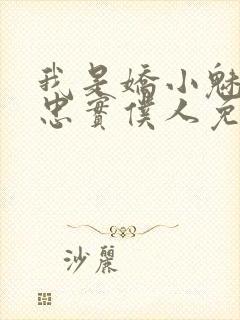 我是嬌小魅
忠實僕人兔
沙麗